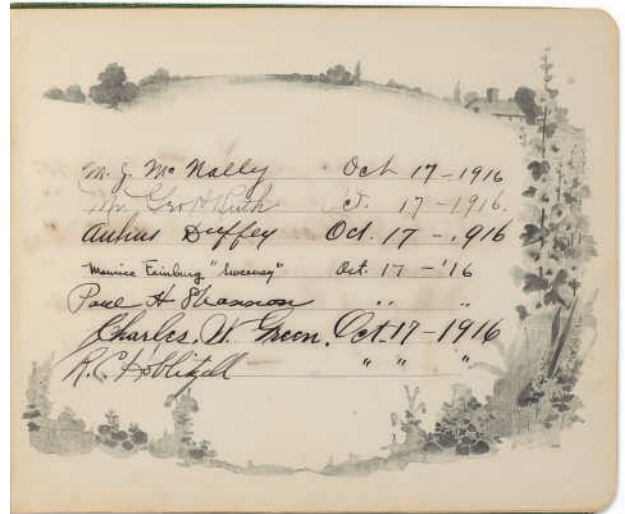 M. J. McNally Oct 17-1916
Mr. Geo H Ruth Oct. 17-1916.
Arthur Duffey Oct. 17-1916
Maurice Fainburg "Sweeney" Oct. 17-'16
Paul H Shannon " "
Charles. W. Green. Oct. 17-1916
R. C. Hoblitzell " " "